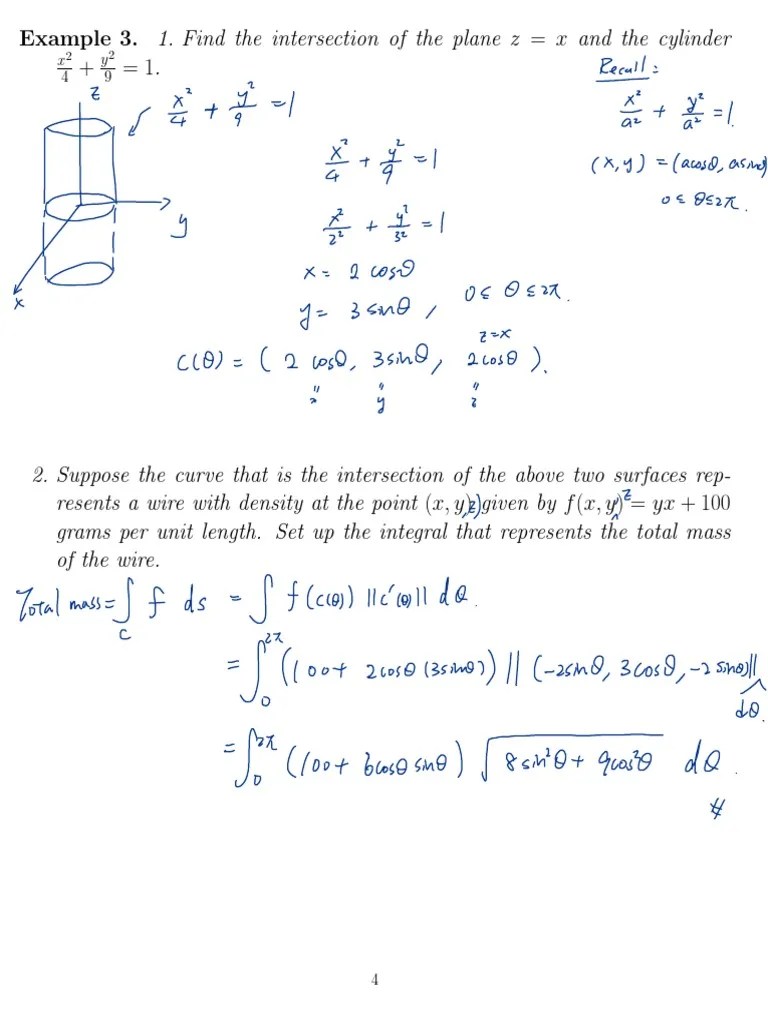 Example 3. 1. Find the intersection of the plane z = x and the cylinder
x²/4 + y²/9 = 1.
Recall:
z
x²/4 + y²/9 = 1
x²/a² + y²/a² = 1.
x²/4 + y²/9 = 1
(x, y) = (acosθ, asinθ)
y
x²/2² + y²/3² = 1
0 ≤ θ ≤ 2π.
x
x = 2 cosθ
y = 3 sinθ , 0 ≤ θ ≤ 2π.
z=x
C(θ) = ( 2 cosθ, 3sinθ, 2cosθ ).
" " "
x y z
2. Suppose the curve that is the intersection of the above two surfaces rep-
resents a wire with density at the point (x, y,z) given by f(x, y,z) = yx + 100
grams per unit length. Set up the integral that represents the total mass
of the wire.
Total mass = ∫_C f ds = ∫ f(c(θ)) ||c'(θ)|| dθ.
= ∫_0^2π (100 + 2cosθ(3sinθ)) || (-2sinθ, 3cosθ, -2sinθ)||
dθ.
= ∫_0^2π (100 + 6cosθ sinθ) √(8sin²θ + 9cos²θ) dθ.
#
4